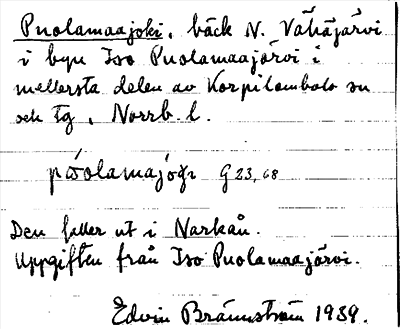 Puolamaajoki, bäck N. Vähäjärvi
i byn Iso Puolamaajärvi i
mellersta delen av Korpilombolo sn
och tg, Norrb. l.
G 23,68
Den faller ut i Narkån.
Uppgiften från Iso Puolamaajärvi.
Edvin Brännström 1939.